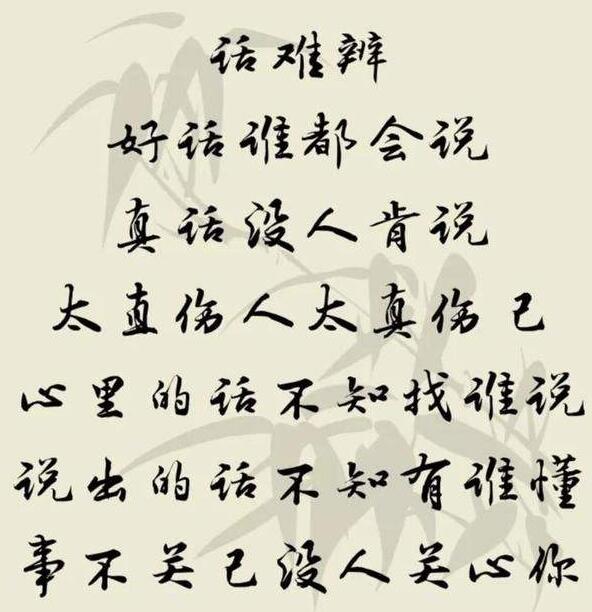 话难辨
好话谁都会说
真话没人肯说
太直伤人太真伤己
心里的话不知找谁说
说出的话不知有谁懂
事不关己没人关心你